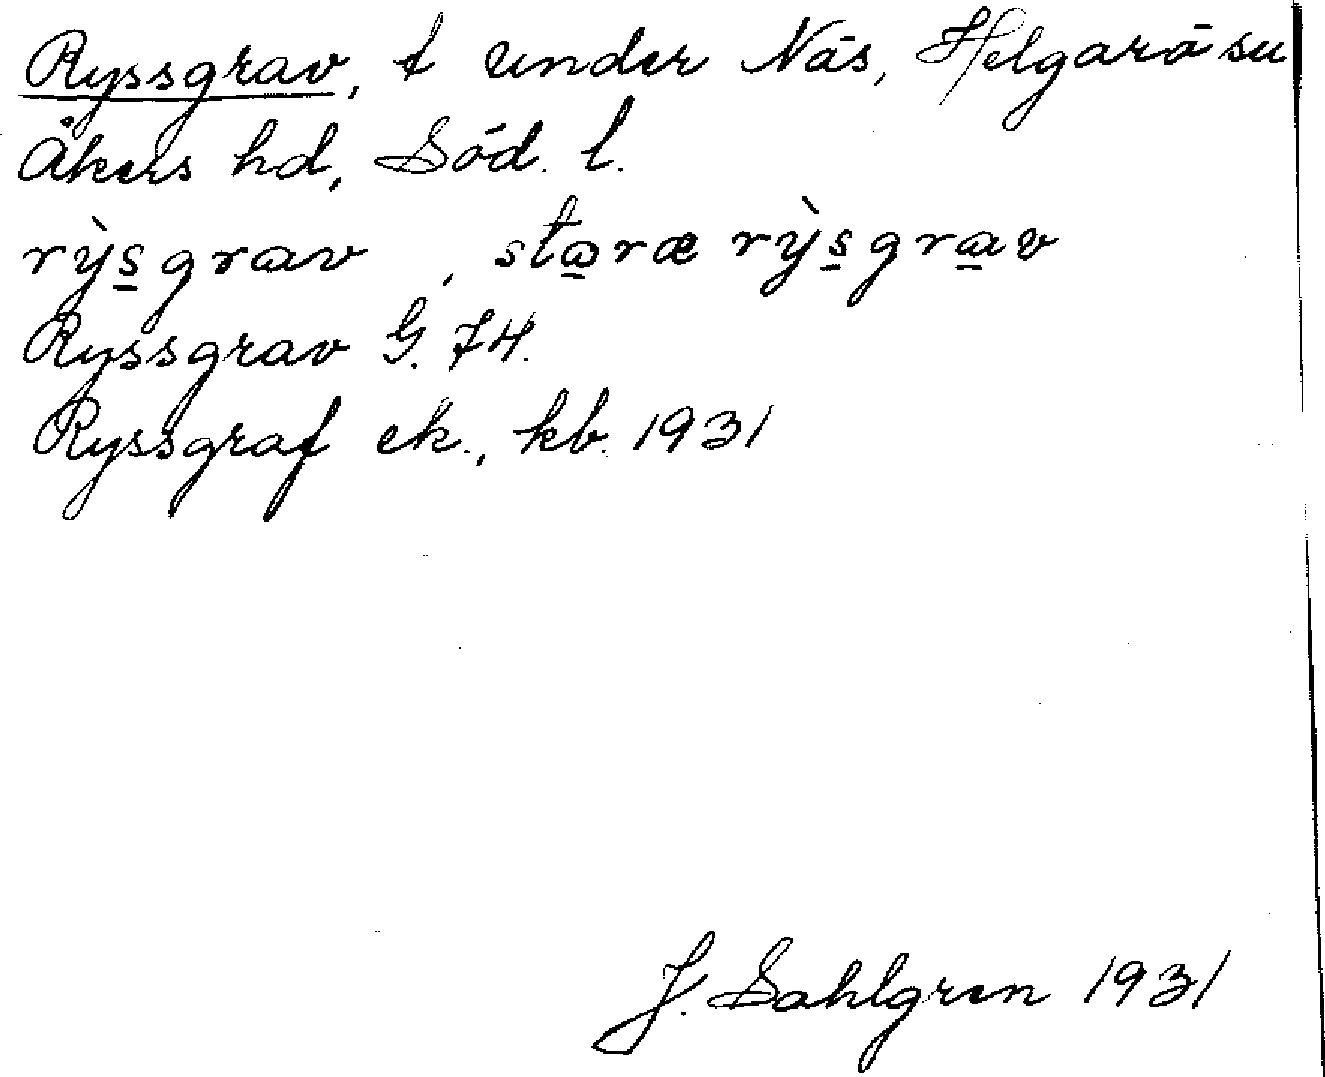 Ryssgrav, t under Näs, Helgarö sn
Åkers hd, Söd. l.
rỳs̲grav , sta̲ræ rỳs̲gra̲v
Ryssgrav G. 74.
Ryssgraf ek., kb. 1931
J. Sahlgren 1931